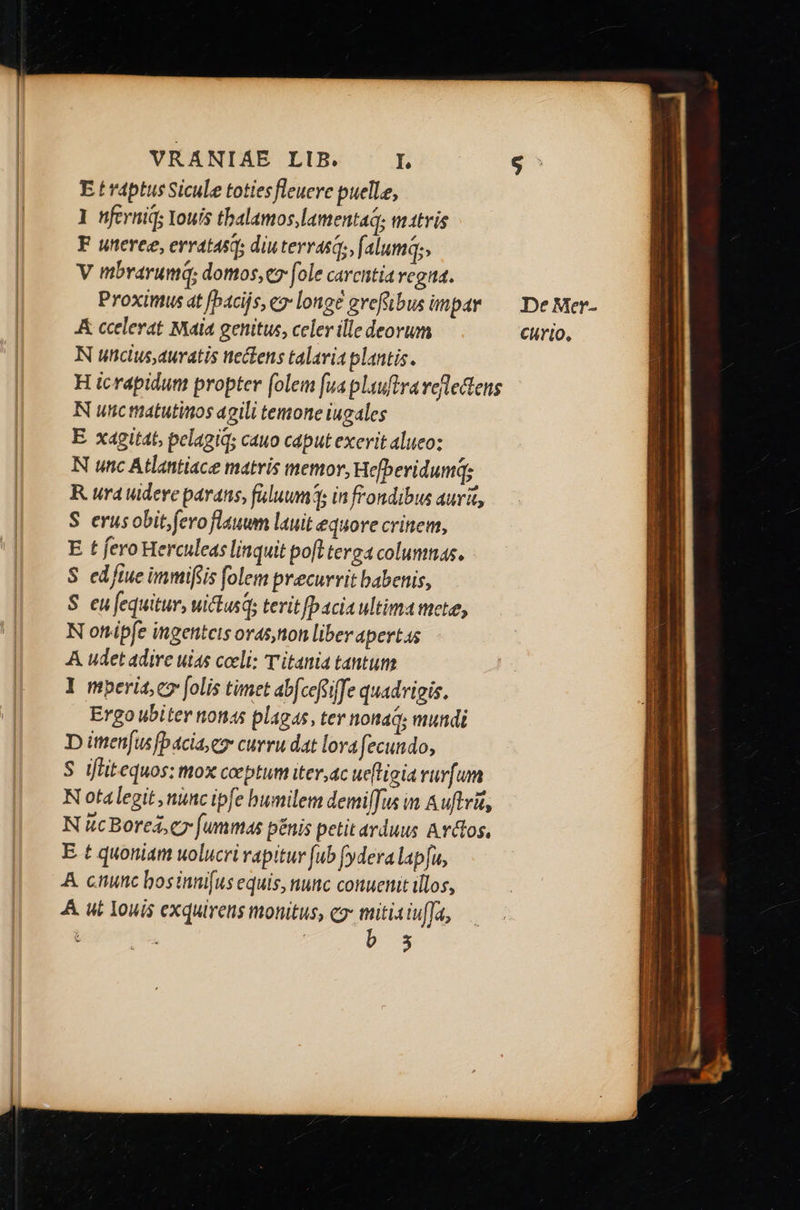 VRANIAE LIB. I. 5
E t raptus Siculæ toties fleuere puellæ,
I nferniq́; Iouis thalamos, lamentaq́; matris
F unereæ, erratasq́; diu terrasq́;, salumq́;,
V mbrarumq́; domos, & sole carentia regna.
Proximus at spacijs, & longè greßibus impar
De Mer-
curio.
A ccelerat Maia genitus, celer ille deorum
N uncius, auratis nectens talaria plantis.
H ic rapidum propter solem sua plaustra reflectens
N unc matutinos agili temone iugales
E xagitat, pelagiq́; cauo caput exerit alueo:
N unc Atlantiace matris memor, Hesperidumq́;
R ura uidere parans, fuluumq́; in frondibus aurũ,
S erus obit, sero flauum lauit æquore crinem,
E t sero Herculeas linquit post terga columnas.
S ed siue immißis solem præcurrit habenis,
S eu sequitur, uictusq́; terit spacia ultima metæ,
N on ipse ingenteis oras, non liber apertas
A udet adire uias cœli: Titania tantum
I mperia, & solis timet absceßisse quadrigis.
Ergo ubi ter nonas plagas, ter nonaq́; mundi
D imensus spacia, & curru dat lora secundo,
S istit equos: mox cœptum iter, ac uestigia rursum
N ota legit, nũnc ipse humilem demissus in Austrũ,
N ũc Boreã, & summas pẽnis petit arduus Arctos.
E t quoniam uolucri rapitur sub sydera lapsu,
A c nunc hos innisus equis, nunc conuenit illos,
A ut Iouis exquirens monitus, & mitia iussa,
b 3